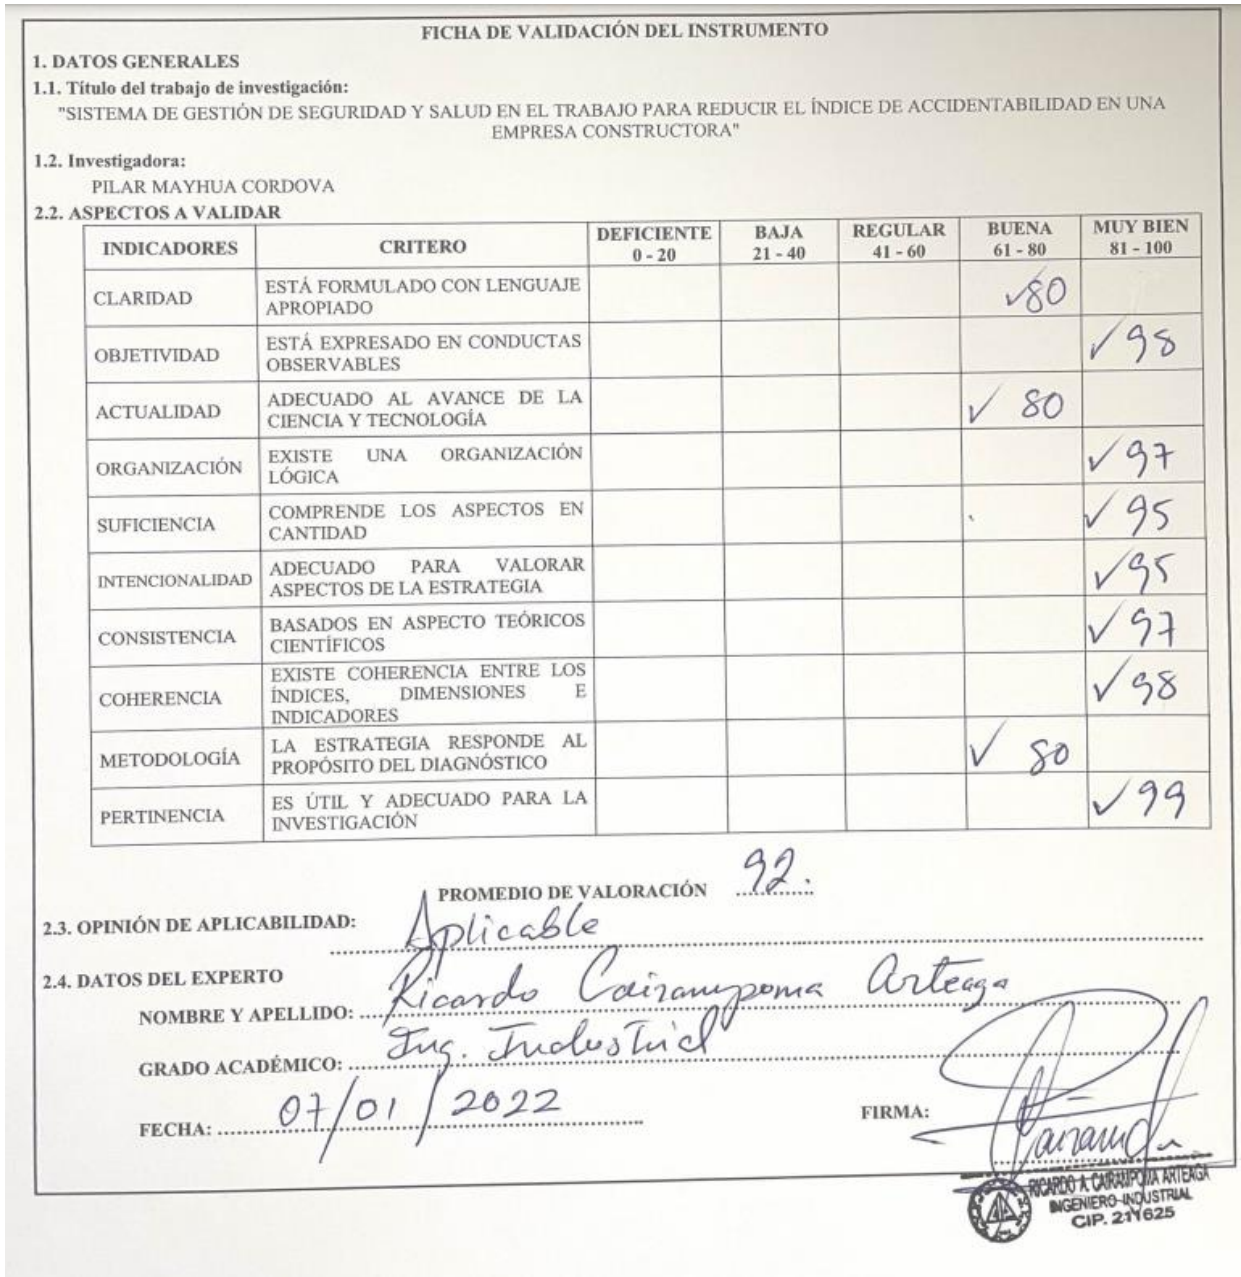 FICHA DE VALIDACIÓN DEL INSTRUMENTO
1. DATOS GENERALES
1.1. Título del trabajo de investigación:
"SISTEMA DE GESTIÓN DE SEGURIDAD Y SALUD EN EL TRABAJO PARA REDUCIR EL ÍNDICE DE ACCIDENTABILIDAD EN UNA
EMPRESA CONSTRUCTORA"
1.2. Investigadora:
PILAR MAYHUA CORDOVA
2.2. ASPECTOS A VALIDAR
INDICADORES CRITERO DEFICIENTE BAJA REGULAR BUENA MUY BIEN
0 - 20 21 - 40 41 - 60 61 - 80 81 - 100
CLARIDAD ESTÁ FORMULADO CON LENGUAJE ✓80
APROPIADO
OBJETIVIDAD ESTÁ EXPRESADO EN CONDUCTAS ✓98
OBSERVABLES
ACTUALIDAD ADECUADO AL AVANCE DE LA ✓ 80
CIENCIA Y TECNOLOGÍA
ORGANIZACIÓN EXISTE UNA ORGANIZACIÓN ✓97
LÓGICA
SUFICIENCIA COMPRENDE LOS ASPECTOS EN ✓95
CANTIDAD
INTENCIONALIDAD ADECUADO PARA VALORAR ✓95
ASPECTOS DE LA ESTRATEGIA
CONSISTENCIA BASADOS EN ASPECTO TEÓRICOS ✓97
CIENTÍFICOS
EXISTE COHERENCIA ENTRE LOS
COHERENCIA ÍNDICES, DIMENSIONES E ✓98
INDICADORES
METODOLOGÍA LA ESTRATEGIA RESPONDE AL ✓ 80
PROPÓSITO DEL DIAGNÓSTICO
PERTINENCIA ES ÚTIL Y ADECUADO PARA LA ✓99
INVESTIGACIÓN
PROMEDIO DE VALORACIÓN 92.
2.3. OPINIÓN DE APLICABILIDAD: Aplicable
2.4. DATOS DEL EXPERTO
NOMBRE Y APELLIDO: Ricardo Cairampoma Arteaga
GRADO ACADÉMICO: Ing. Industrial
FECHA: 07/01/2022 FIRMA:
RICARDO A. CAIRAMPOMA ARTEAGA
INGENIERO INDUSTRIAL
CIP. 211625